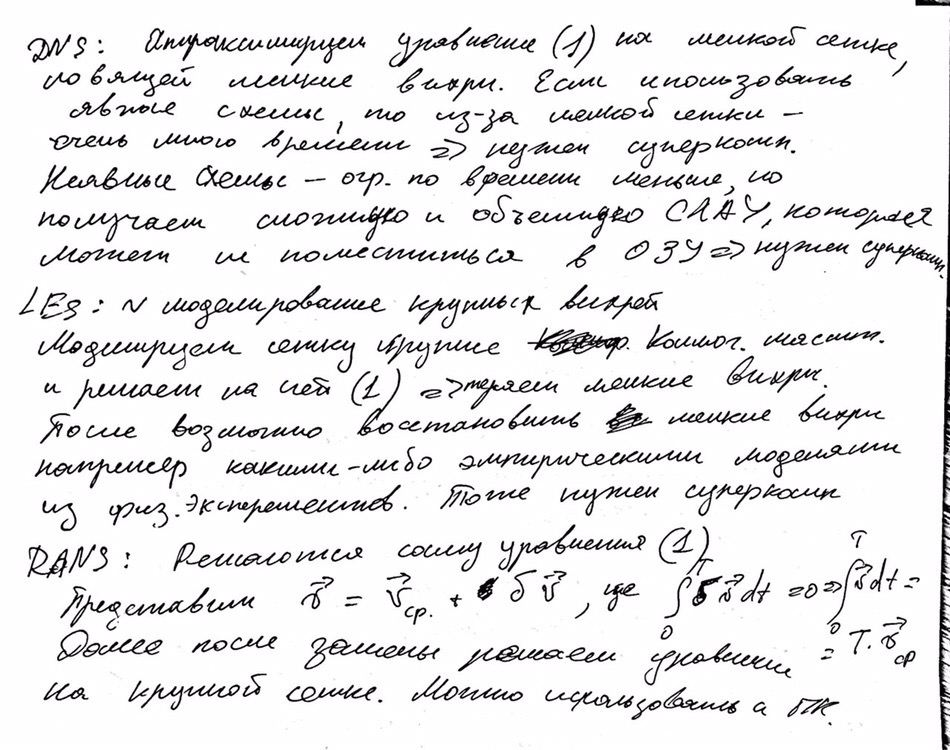 DNS: Аппроксимируем уравнение (1) на мелкой сетке,
ловящей мелкие вихри. Если использовать
явные схемы, то из-за мелкой сетки –
очень много времени => нужен суперкомп.
Неявные схемы – огр. по времени меньше, но
получаем сложную и объемную СЛАУ, которая
может не поместиться в ОЗУ => нужен суперкомп.
LES: ~ моделирование крупных вихрей
Моделируем сетку крупнее Колмог. масшт.
и решаем на ней (1) => теряем мелкие вихри.
После возможно восстановить мелкие вихри
например какими-либо эмпирическими моделями
из физ. экспериментов. Тоже нужен суперкомп
RANS: Решаются уравнения (1)
Представим v⃗ = v⃗ср. + δv⃗, где ∫₀ᵀ δv⃗dt = 0 => ∫₀ᵀ v⃗dt =
= T·v⃗ср
Далее после замены решаем уравнения
на крупной сетке. Можно использовать и ПК.